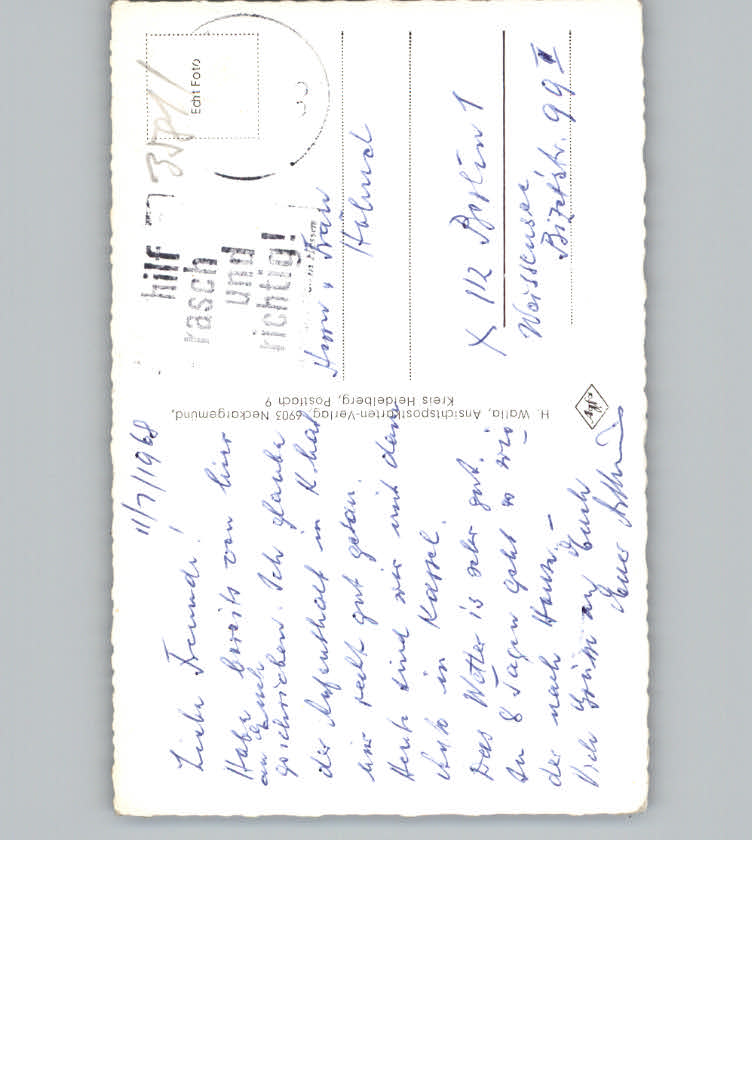 11/7/1968
Liebe Freunde!
Habe bereits von hier
an Euch
geschrieben. Ich glaube
der Aufenthalt in K hat
hier recht gut getan.
Heute sind wir mit dem
Auto in Kassel.
Das Wetter is sehr gut.
In 8 Tagen geht es wie
der nach Hause. –
Viele Grüße an Euch
Euer
H. Walla, Ansichtspostkarten-Verlag, 6903 Neckargemünd,
Kreis Heidelberg, Postfach 9
Agfa
hilf
rasch
und
richtig!
Echt Foto
Herrn u Frau
X 112 Berlin 1
Weissensee
Bizetstr. 99 II